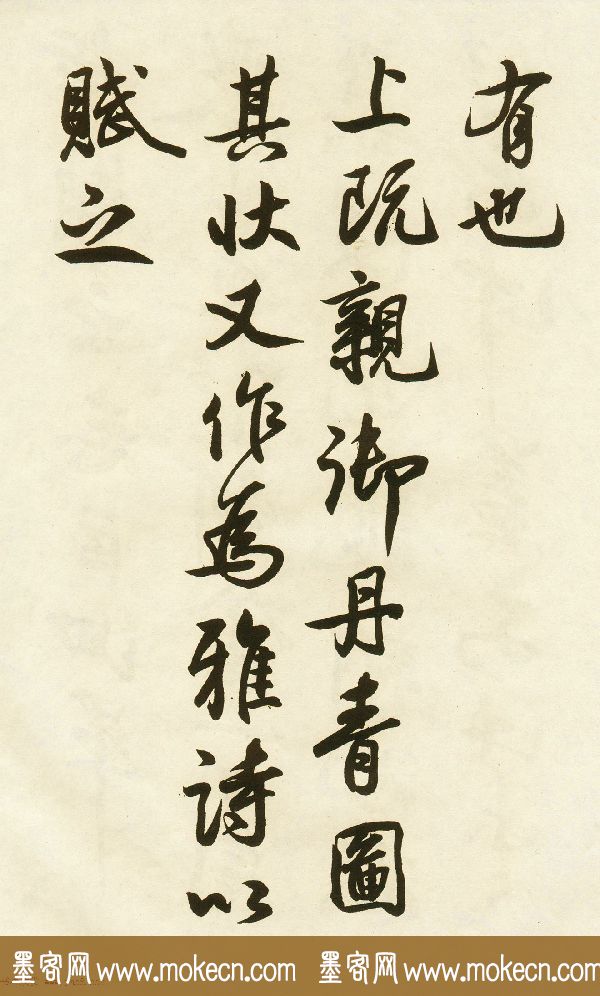 有也
上既親御丹青圖
其狀又作為雅詩以
賦之
墨客网 www.mokecn.com 墨客网 www.mokecn.com